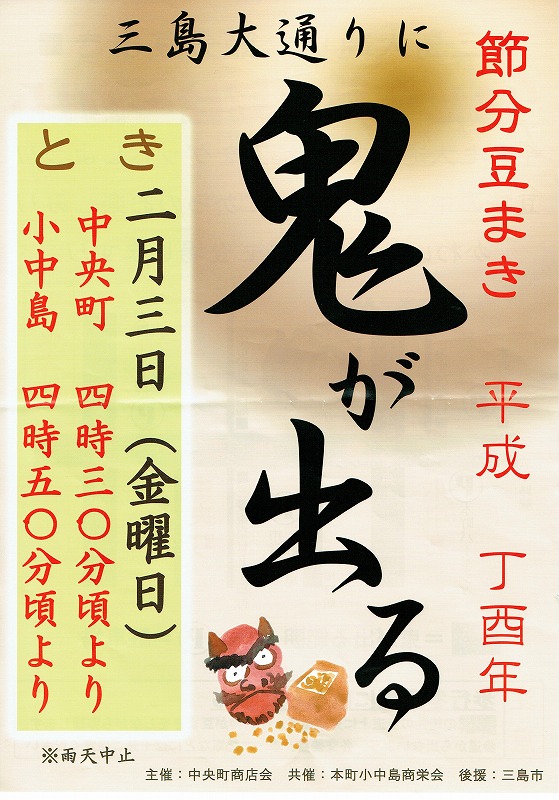 三島大通りに
節分豆まき　平成　丁酉年
鬼が出る
とき
二月三日（金曜日）
中央町　四時三〇分頃より
小中島　四時五〇分頃より
※雨天中止
主催：中央町商店会　共催：本町小中島商栄会　後援：三島市